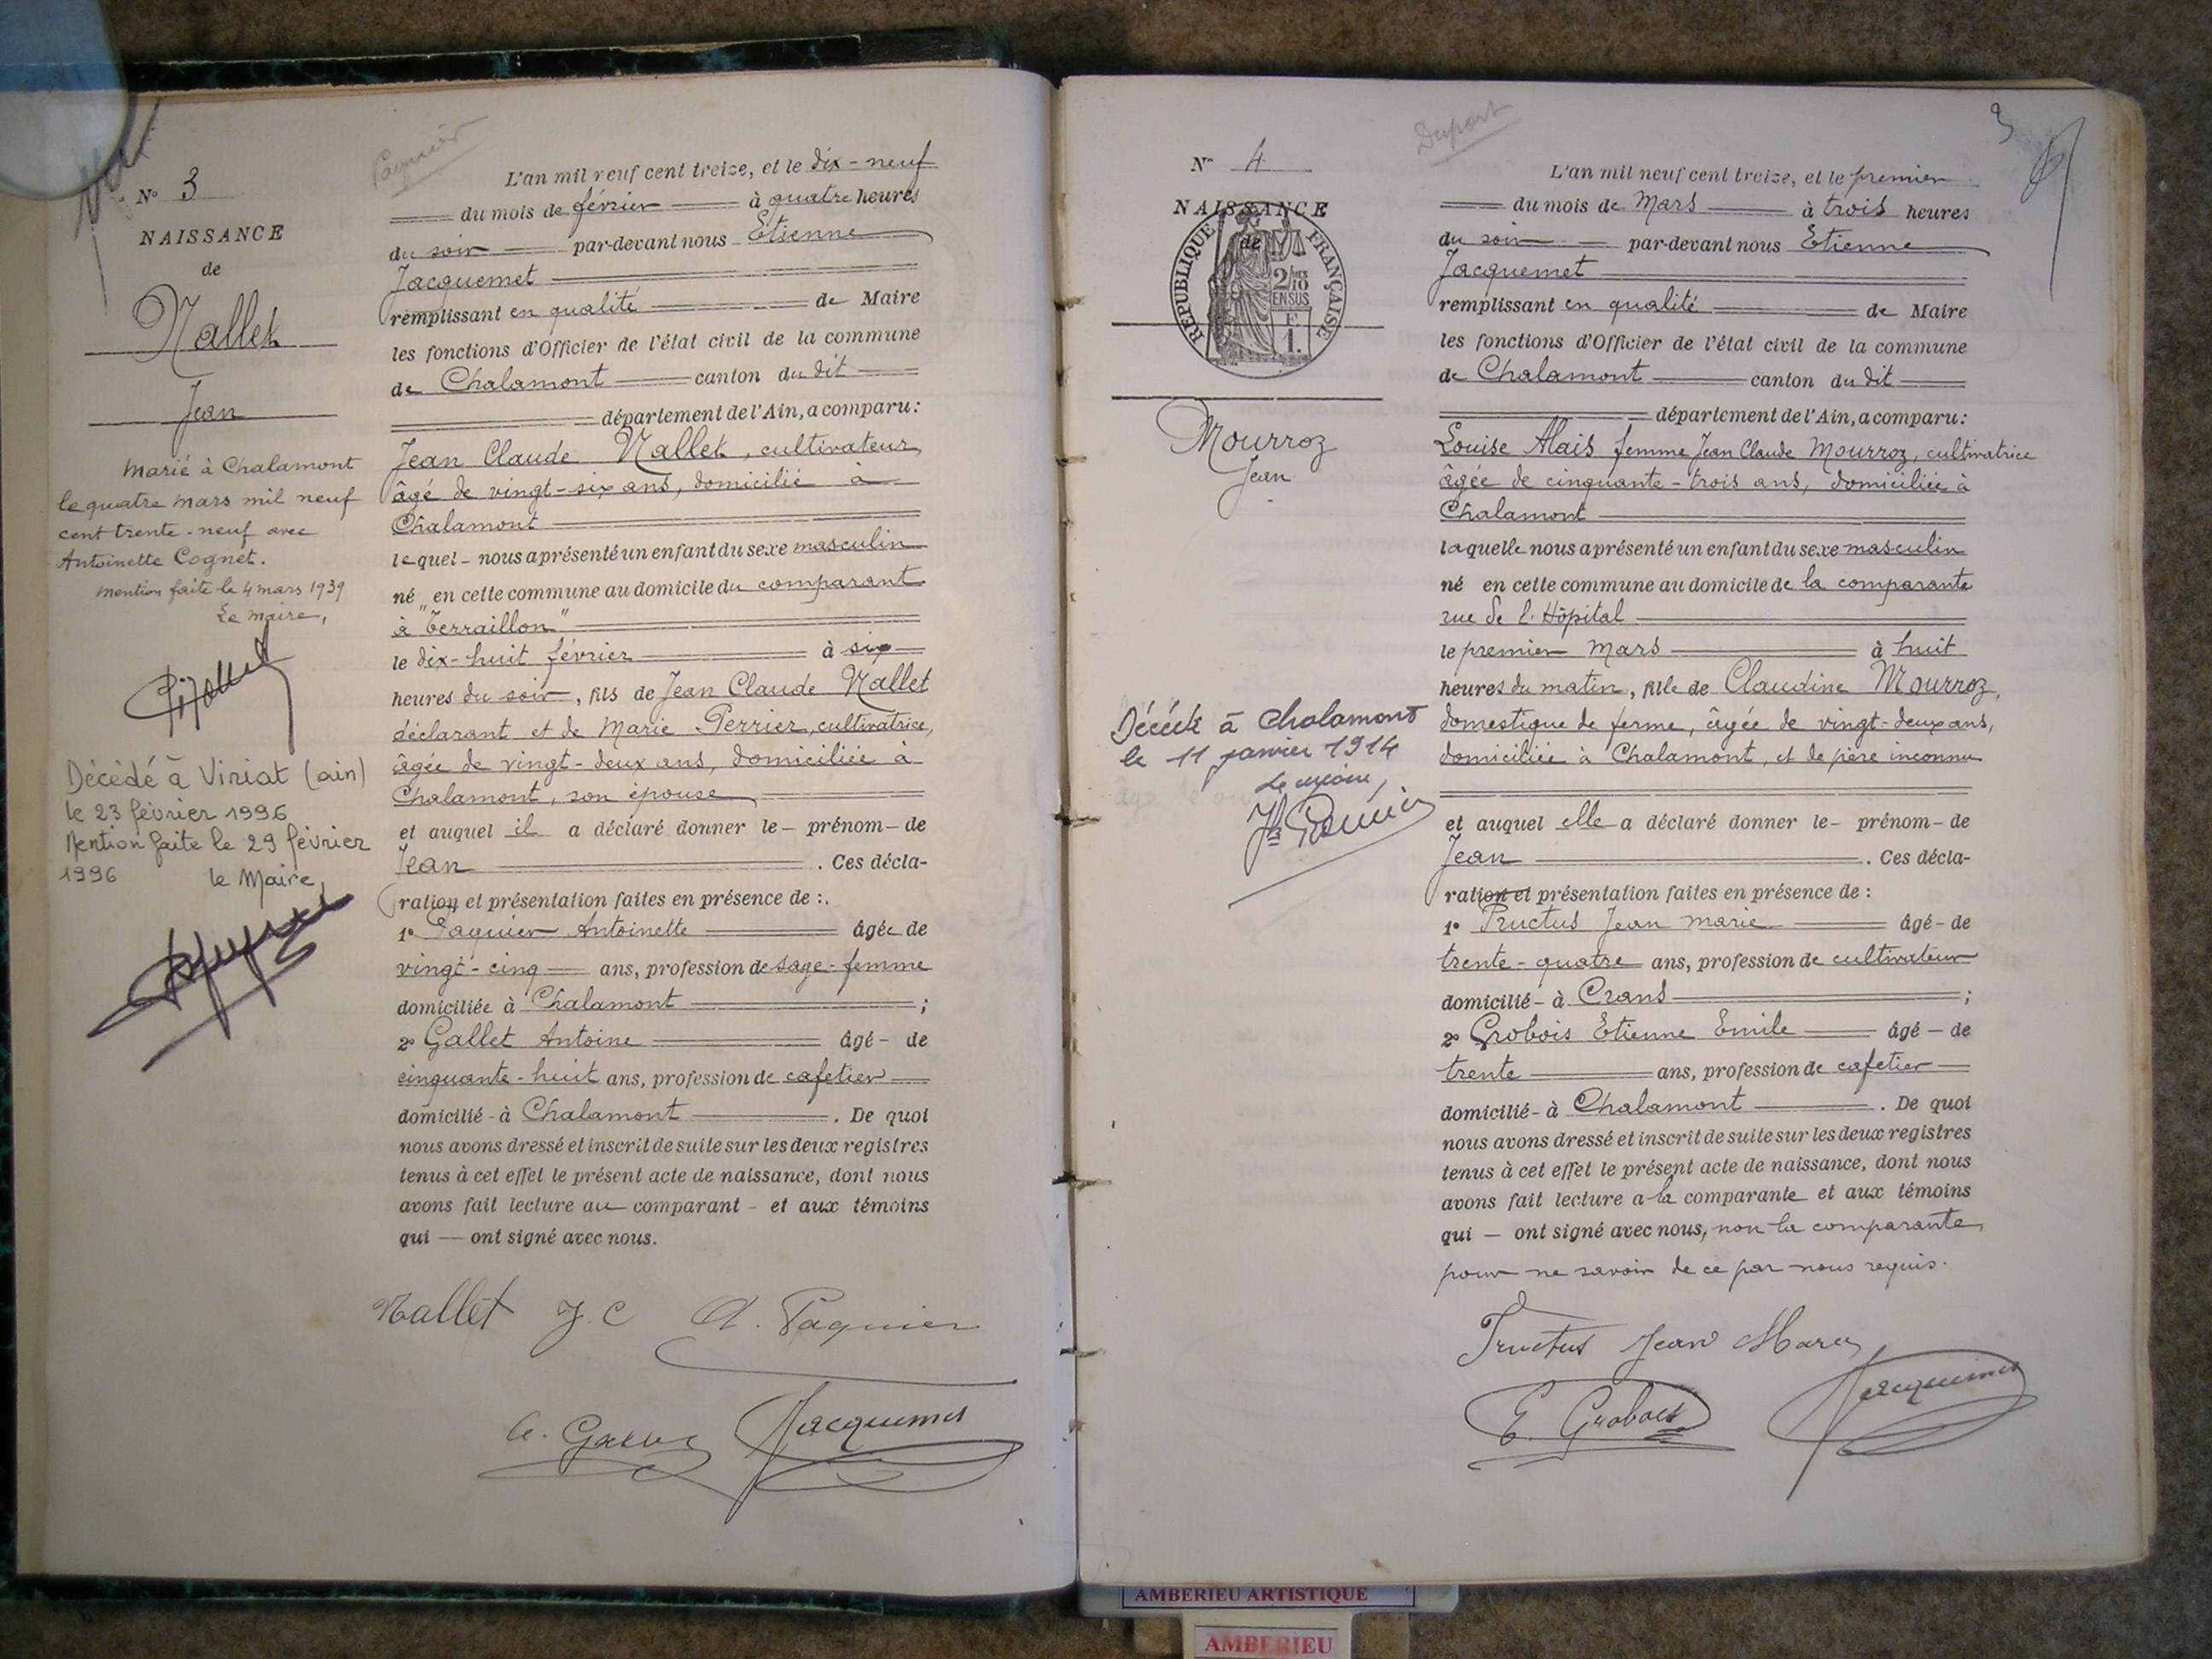 N° 3
NAISSANCE
de
Nallet
Jean
Marié à Chalamont
le quatre mars mil neuf
cent trente-neuf avec
Antoinette Cognet.
Mention faite le 4 mars 1939
Le maire,
Décédé à Viriat (ain)
le 23 février 1996
Mention faite le 29 février
1996 le Maire,
L'an mil neuf cent treize, et le dix-neuf
du mois de février à quatre heures
du soir par-devant nous Etienne
Jacquemet
remplissant en qualité de Maire
les fonctions d'Officier de l'état civil de la commune
de Chalamont canton du dit
département de l'Ain, a comparu:
Jean Claude Nallet, cultivateur,
âgé de vingt-six ans, domicilié à
Chalamont
lequel nous a présenté un enfant du sexe masculin
né en cette commune au domicile du comparant
à "Terraillon"
le dix-huit février à six
heures du soir, fils de Jean Claude Nallet
déclarant et de Marie Perrier, cultivatrice,
âgée de vingt-deux ans, domiciliée à
Chalamont, son épouse
et auquel il a déclaré donner le prénom de
Jean . Ces décla-
ration et présentation faites en présence de :
1° Paquier Antoinette âgée de
vingt-cinq ans, profession de sage-femme
domiciliée à Chalamont ;
2° Gallet Antoine âgé de
cinquante-huit ans, profession de cafetier
domicilié à Chalamont . De quoi
nous avons dressé et inscrit de suite sur les deux registres
tenus à cet effet le présent acte de naissance, dont nous
avons fait lecture au comparant et aux témoins
qui ont signé avec nous.
Nallet J. C A. Paquier
Jacquemet
Dupont
3
N° 4
NAISSANCE
de
REPUBLIQUE FRANÇAISE
2/10
EN SUS
F.
1.
Mourroz
Jean
Décédé à Chalamont
le 11 janvier 1914
Le maire,
L'an mil neuf cent treize, et le premier
du mois de Mars à trois heures
du soir par-devant nous Etienne
Jacquemet
remplissant en qualité de Maire
les fonctions d'Officier de l'état civil de la commune
de Chalamont canton du dit
département de l'Ain, a comparu:
Louise Alais femme Jean Claude Mourroz, cultivatrice
âgée de cinquante-trois ans, domiciliée à
Chalamont
laquelle nous a présenté un enfant du sexe masculin
né en cette commune au domicile de la comparante
rue de l'Hôpital
le premier Mars à huit
heures du matin, fils de Claudine Mourroz,
domestique de ferme, âgée de vingt-deux ans,
domiciliée à Chalamont, et de père inconnu
et auquel elle a déclaré donner le prénom de
Jean . Ces décla-
ration et présentation faites en présence de :
1° Tructus Jean Marie âgé de
trente-quatre ans, profession de cultivateur
domicilié à Crans ;
2° Grobois Etienne Emile âgé de
trente ans, profession de cafetier
domicilié à Chalamont . De quoi
nous avons dressé et inscrit de suite sur les deux registres
tenus à cet effet le présent acte de naissance, dont nous
avons fait lecture a la comparante et aux témoins
qui ont signé avec nous, non la comparante,
pour ne savoir de ce par nous requis.
Tructus Jean Marie
E. Grobois Jacquemet
AMBERIEU ARTISTIQUE
AMBERIEU